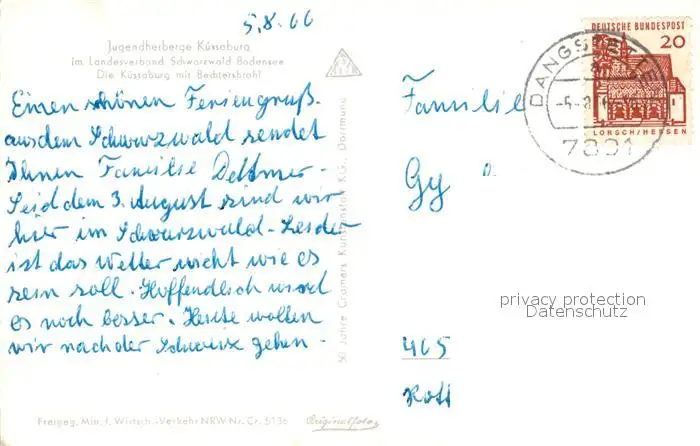 5.8.66
Jugendherberge Küssaburg
im Landesverband Schwarzwald Bodensee
Die Küssaburg mit Bechtersbohl
Einen schönen Feriengruß
aus dem Schwarzwald sendet
Ihnen Familie Dettmer.
Seid dem 3. August sind wir
hier im Schwarzwald. Leider
ist das Wetter nicht wie es
sein soll. Hoffendlich wird
es noch besser. Heute wollen
wir nach der Schweiz gehen.
50 Jahre Cramers Kunstanstalt KG., Dortmund
Freigeg. Min. f. Wirtsch.-Verkehr NRW Nr. Cr. 5136
Originalfoto
Familie
Gy
465
DEUTSCHE BUNDESPOST
20
LORSCH/HESSEN
7891
privacy protection
Datenschutz